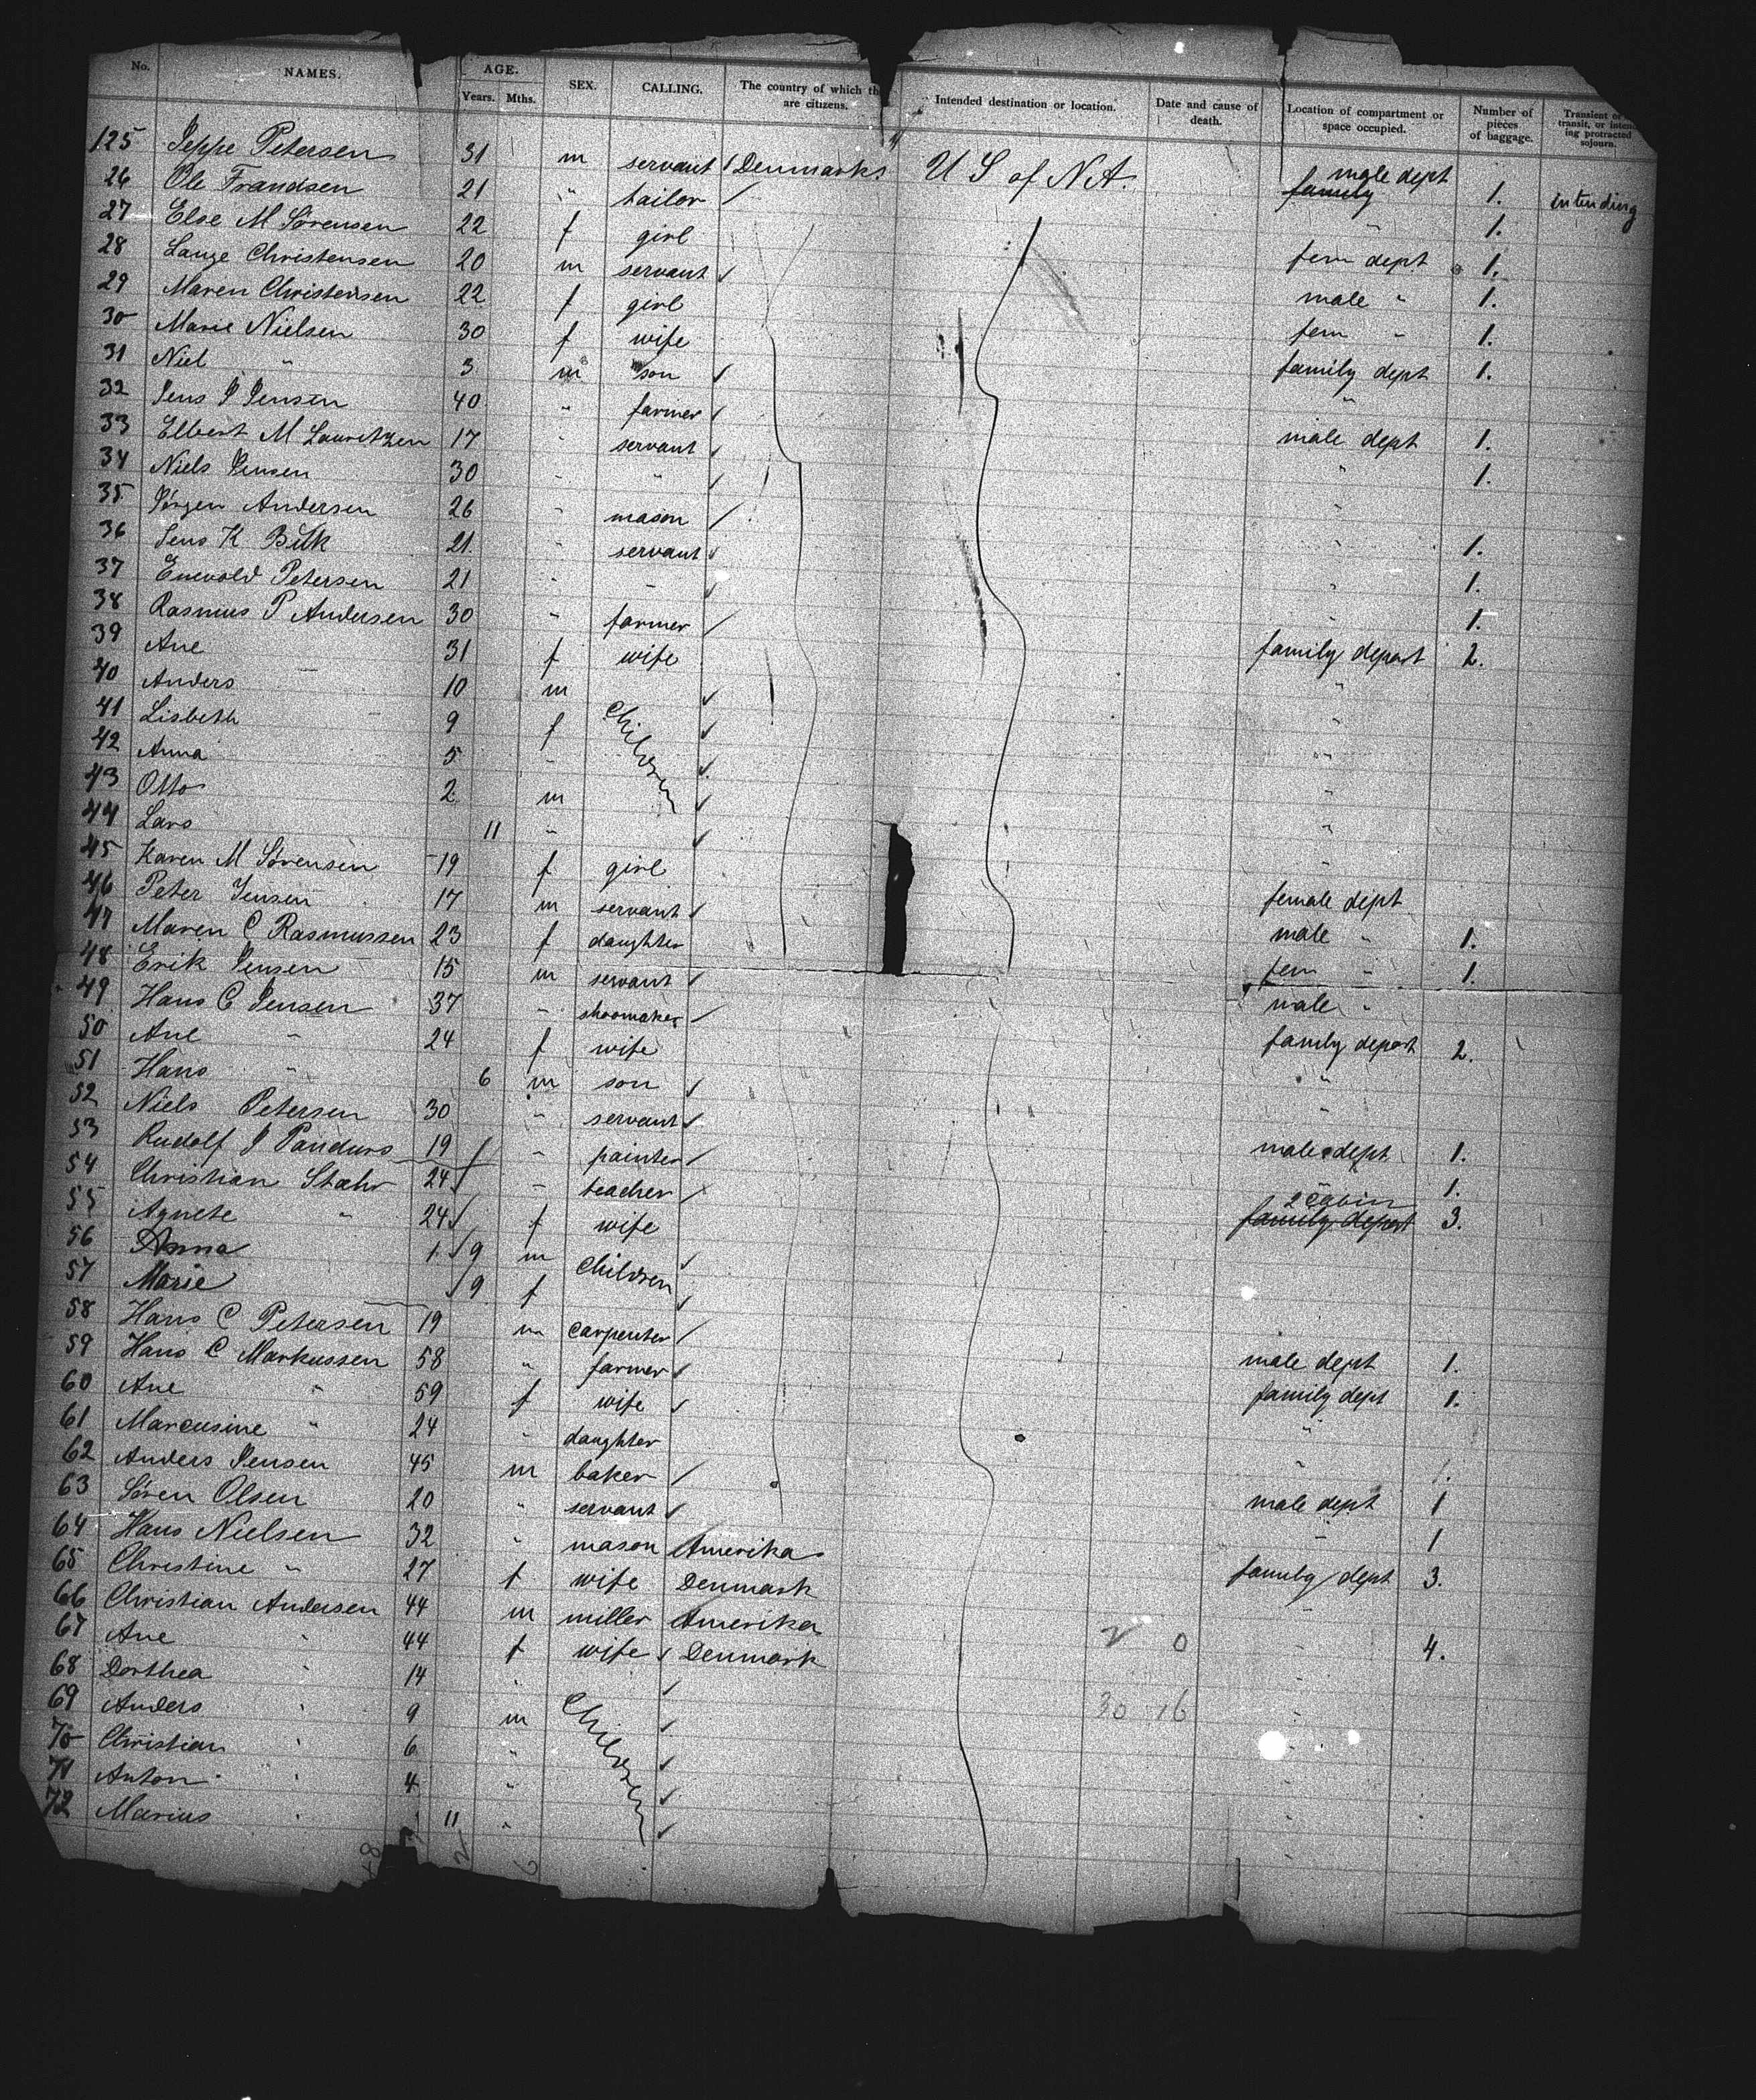 No. NAMES. AGE. Years. Mths. SEX. CALLING. The country of which th are citizens. Intended destination or location. Date and cause of death. Location of compartment or space occupied. Number of pieces of baggage. Transient or transit, or inten ing protracted sojourn.
125 Jeppe Petersen 31 m servant Denmark U S of N.A. male dept family 1. intending
26 Ole Frandsen 21 " tailor " 1.
27 Else M Sörensen 22 f girl fem dept 1.
28 Lauge Christensen 20 m servant male " 1.
29 Maren Christensen 22 f girl fem " 1.
30 Marie Nielsen 30 f wife family dept 1.
31 Niel " 3 m son "
32 Jens P Jensen 40 " farmer male dept 1.
33 Elbert M Lauritzen 17 " servant " 1.
34 Niels Jensen 30 " " "
35 Jörgen Andersen 26 " mason " 1.
36 Jens K Bilk 21 " servant " 1.
37 Enevold Petersen 21 " " " 1.
38 Rasmus P Andersen 30 " farmer family depart 2.
39 Ane 31 f wife "
40 Anders 10 m Children "
41 Lisbeth 9 f "
42 Anna 5 " "
43 Otto 2 m "
44 Lars 11 " "
45 Karen M Sörensen 19 f girl female dept
46 Peter Jensen 17 m servant male " 1.
47 Maren C Rasmussen 23 f daughter fem " 1.
48 Erik Jensen 15 m servant male "
49 Hans C Jensen 37 " shoomaker family depart 2.
50 Ane " 24 f wife "
51 Hans " 6 m son "
52 Niels Petersen 30 " servant male dept 1.
53 Rudolf J Panduro 19 " painter " 1.
54 Christian Stahr 24 " teacher 2 cabin family depart 3.
55 Agnete " 24 f wife
56 Anna 1 9 m Children
57 Marie 9 f
58 Hans C Petersen 19 m carpenter male dept 1.
59 Hans C Markussen 58 " farmer family dept 1.
60 Ane " 59 f wife "
61 Marcusine " 24 " daughter " 1.
62 Anders Jensen 45 m baker male dept 1
63 Sören Olsen 20 " servant " 1
64 Hans Nielsen 32 " mason Amerika family dept 3.
65 Christine " 27 f wife Denmark "
66 Christian Andersen 44 m miller Amerika " 4.
67 Ane " 44 f wife Denmark "
68 Dorthea " 14 " Children
69 Anders " 9 m "
70 Christian " 6 " "
71 Anton " 4 "
72 Marius " 11 " "
2 0
30 16